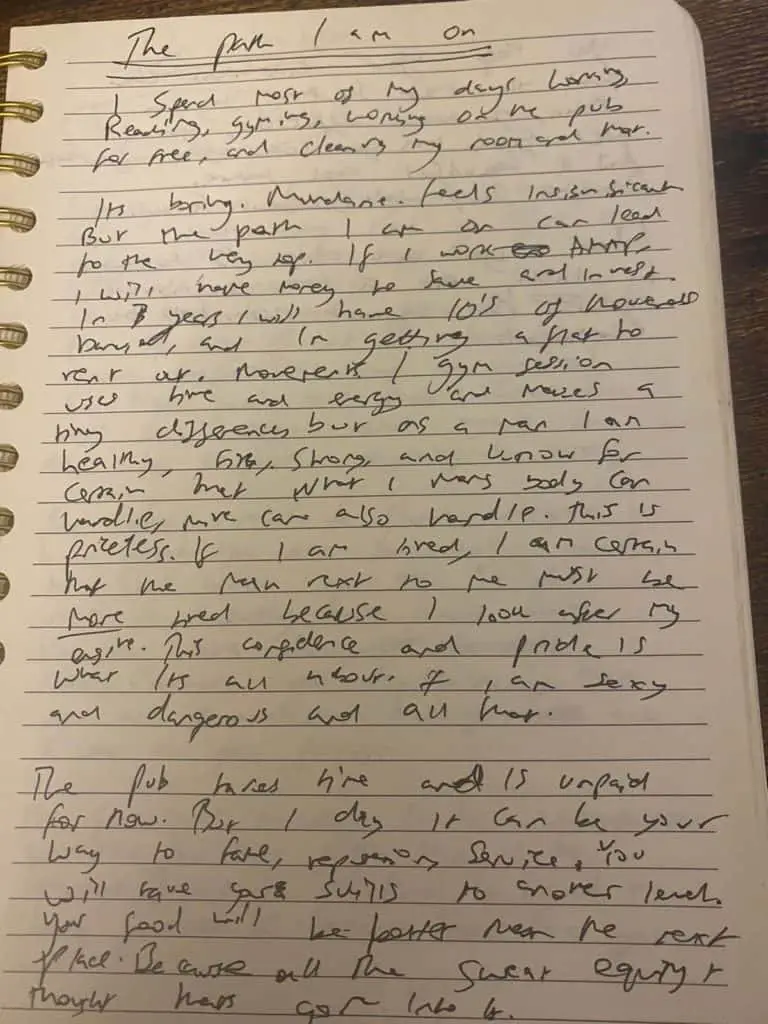 The path I am on
I spend most of my days working,
Reading, gyming, working on the pub
for free, and cleaning my room and that.
Its boring. Mundane. Feels insignificant
But the path I am on can lead
to the very top. If I work AMAP,
I will have money to save and invest.
In 7 years I will have 10's of thousands
banked, and in getting a flat to
rent out. 1 gym session
uses time and energy and makes a
tiny difference, but as a man I am
healthy, fit, strong, and know for
certain that what 1 mans body can
handle, mine can also handle. This is
priceless. If I am tired, I am certain
that the man next to me must be
more tired because I look after my
engine. This confidence and pride is
what its all about. I am sexy
and dangerous and all that.
The pub takes time and is unpaid
for now. But 1 day it can be your
way to fame, reputation, service. You
will take your skills to another level.
Your food will be better than the next
place. Because all the sweat equity +
thought thats gone into it.